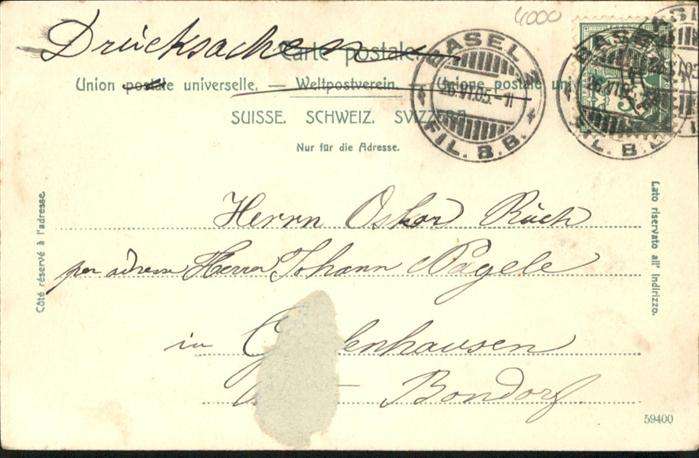 4000
Drucksachen
Carte postale.
Union postale universelle. — Weltpostverein. — Unione postale uni
SUISSE. SCHWEIZ. SVIZZERA
Nur für die Adresse.
BASEL 2
26.VI.05.-11
FIL. B. B.
BASEL
FIL. B.
5
Côté réservé à l'adresse.
Lato riservato all' indirizzo.
Herrn Oskar Rüch
per adresse Herrn Johann Nägele
in hausen
Bondorf
59400